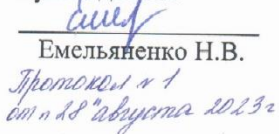 Емельяненко Н.В.
Протокол № 1
от "28" августа 2023 г